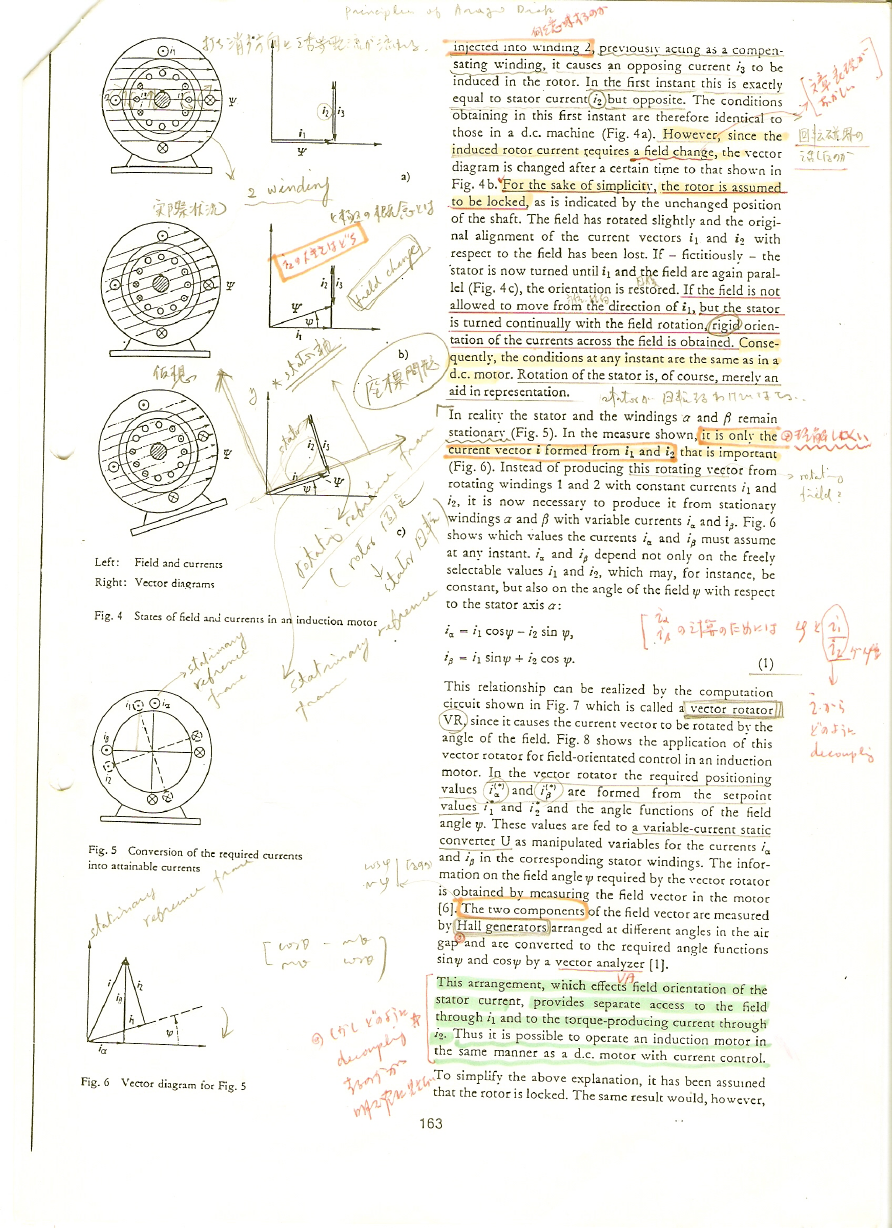 Principles of Arago Disk
打ち消す方向に
2 winding
実際状況
field change
仮想
座標問題
* stator軸
rotating reference frame
stationary reference frame
a)
b)
c)
Left: Field and currents
Right: Vector diagrams
Fig. 4 States of field and currents in an induction motor
stationary
reference
frame
Fig. 5 Conversion of the required currents
into attainable currents
stationary reference frame
Fig. 6 Vector diagram for Fig. 5
injected into winding 2, previously acting as a compen-
sating winding, it causes an opposing current i3 to be
induced in the rotor. In the first instant this is exactly
equal to stator current i2 but opposite. The conditions
obtaining in this first instant are therefore identical to
those in a d.c. machine (Fig. 4a). However, since the
induced rotor current requires a field change, the vector
diagram is changed after a certain time to that shown in
Fig. 4b. For the sake of simplicity, the rotor is assumed
to be locked, as is indicated by the unchanged position
of the shaft. The field has rotated slightly and the origi-
nal alignment of the current vectors i1 and i2 with
respect to the field has been lost. If – fictitiously – the
stator is now turned until i1 and the field are again paral-
lel (Fig. 4c), the orientation is restored. If the field is not
allowed to move from the direction of i1, but the stator
is turned continually with the field rotation, rigid orien-
tation of the currents across the field is obtained. Conse-
quently, the conditions at any instant are the same as in a
d.c. motor. Rotation of the stator is, of course, merely an
aid in representation.
In reality the stator and the windings α and β remain
stationary (Fig. 5). In the measure shown, it is only the
current vector i formed from i1 and i2 that is important
(Fig. 6). Instead of producing this rotating vector from
rotating windings 1 and 2 with constant currents i1 and
i2, it is now necessary to produce it from stationary
windings α and β with variable currents iα and iβ. Fig. 6
shows which values the currents iα and iβ must assume
at any instant. iα and iβ depend not only on the freely
selectable values i1 and i2, which may, for instance, be
constant, but also on the angle of the field ψ with respect
to the stator axis α:
iα = i1 cosψ – i2 sin ψ,
iβ = i1 sinψ + i2 cos ψ.
(1)
This relationship can be realized by the computation
circuit shown in Fig. 7 which is called a vector rotator
VR, since it causes the current vector to be rotated by the
angle of the field. Fig. 8 shows the application of this
vector rotator for field-orientated control in an induction
motor. In the vector rotator the required positioning
values iα(*) and iβ(*) are formed from the setpoint
values i1* and i2* and the angle functions of the field
angle ψ. These values are fed to a variable-current static
converter U as manipulated variables for the currents iα
and iβ in the corresponding stator windings. The infor-
mation on the field angle ψ required by the vector rotator
is obtained by measuring the field vector in the motor
[6]. The two components of the field vector are measured
by Hall generators arranged at different angles in the air
gap and are converted to the required angle functions
sinψ and cosψ by a vector analyzer [1].
VA
This arrangement, which effects field orientation of the
stator current, provides separate access to the field
through i1 and to the torque-producing current through
i2. Thus it is possible to operate an induction motor in
the same manner as a d.c. motor with current control.
To simplify the above explanation, it has been assumed
that the rotor is locked. The same result would, however,
rotating
field?
どのように
decoupling
163